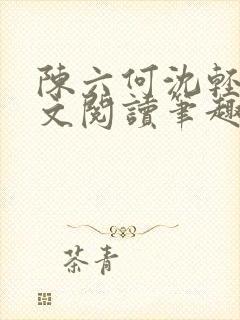 陳六何沈輕
文閱讀筆趣
茶青